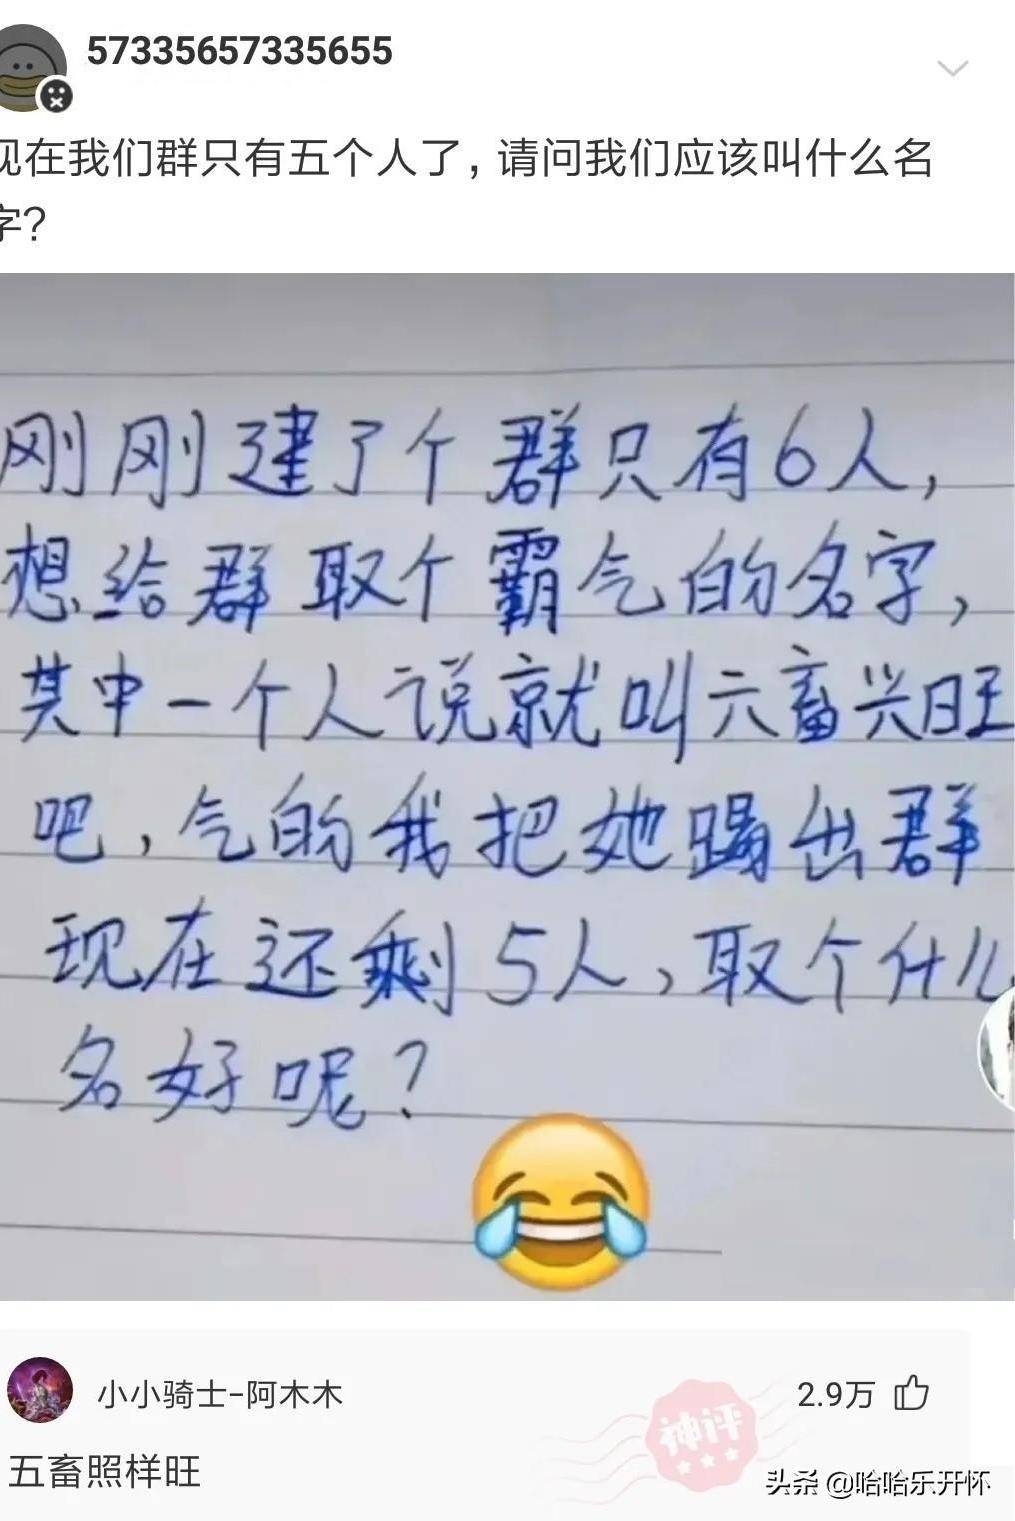 57335657335655
现在我们群只有五个人了，请问我们应该叫什么名
字？
刚刚建了个群只有6人，
想给群取个霸气的名字，
其中一个人说就叫六畜兴旺
吧，气的我把她踢出群
现在还剩5人，取个什么
名好呢？
小小骑士-阿木木
2.9万
神评
五畜照样旺
头条 @哈哈乐开怀